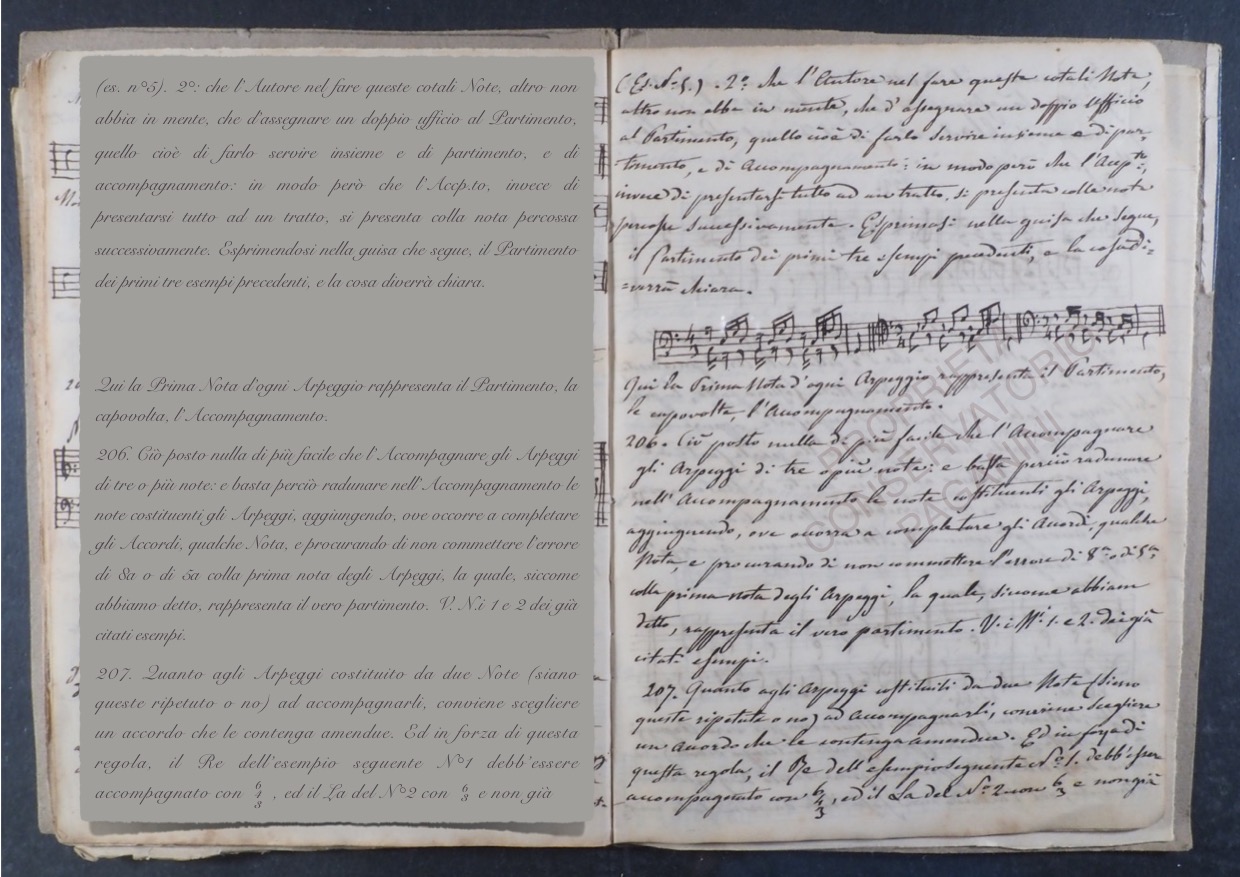 (es. n°5). 2°: che l'Autore nel fare queste cotali Note, altro non
abbia in mente, che d'assegnare un doppio ufficio al Partimento,
quello cioè di farlo servire insieme e di partimento, e di
accompagnamento: in modo però che l'Accp.to, invece di
presentarsi tutto ad un tratto, si presenta colla nota percossa
successivamente. Esprimendosi nella guisa che segue, il Partimento
dei primi tre esempi precedenti, e la cosa diverrà chiara.
Qui la Prima Nota d'ogni Arpeggio rappresenta il Partimento, la
capovolta, l'Accompagnamento.
206. Ciò posto nulla di più facile che l'Accompagnare gli Arpeggi
di tre o più note: e basta perciò radunare nell'Accompagnamento le
note costituenti gli Arpeggi, aggiungendo, ove occorre a completare
gli Accordi, qualche Nota, e procurando di non commettere l'errore
di 8a o di 5a colla prima nota degli Arpeggi, la quale, siccome
abbiamo detto, rappresenta il vero partimento. V. N.i 1 e 2 dei già
citati esempi.
207. Quanto agli Arpeggi costituito da due Note (siano
queste ripetuto o no) ad accompagnarli, conviene scegliere
un accordo che le contenga amendue. Ed in forza di questa
regola, il Re dell'esempio seguente N°1 debb'essere
accompagnato con 6 4 3 , ed il La del N°2 con 6 3 e non già
(Es. N° 5.) . 2°: che l'Autore nel fare queste cotali Note,
altro non abbia in mente, che d'assegnare un doppio Ufficio
al Partimento, quello cioè di farlo servire insieme e di par-
-timento, e di Accompagnamento: in modo però che l'Accp.to,
invece di presentarsi tutto ad un tratto, si presenta colle note
percosse successivamente. Esprimasi nella guisa che segue,
il Partimento dei primi tre esempi precedenti, e la cosa di=
=verrà chiara.
Qui la Prima Nota d'ogni Arpeggio rappresenta il Partimento,
le capovolte, l'Accompagnamento.
206. Ciò posto nulla di più facile che l'Accompagnare
gli Arpeggi di tre o più note: e basta perciò radunare
nell'Accompagnamento le note costituenti gli Arpeggi,
aggiungendo, ove occorra a completare gli Accordi, qualche
Nota, e procurando di non commettere l'errore di 8a o di 5a
colla prima nota degli Arpeggi, la quale, siccome abbiam
detto, rappresenta il vero partimento. V. i N.i 1. e 2. dei già
citati esempi.
207. Quanto agli Arpeggi costituiti da due Note (sieno
queste ripetute o no) ad accompagnarli, conviene scegliere
un accordo che le contenga amendue. Ed in forza di
questa regola, il Re dell'esempio seguente N° 1. debb'esser
accompagnato con 6 4 3, ed il La del N° 2 con 6 3 e non già
PROPRIETÀ
CONSERVATORIO
PAGANINI